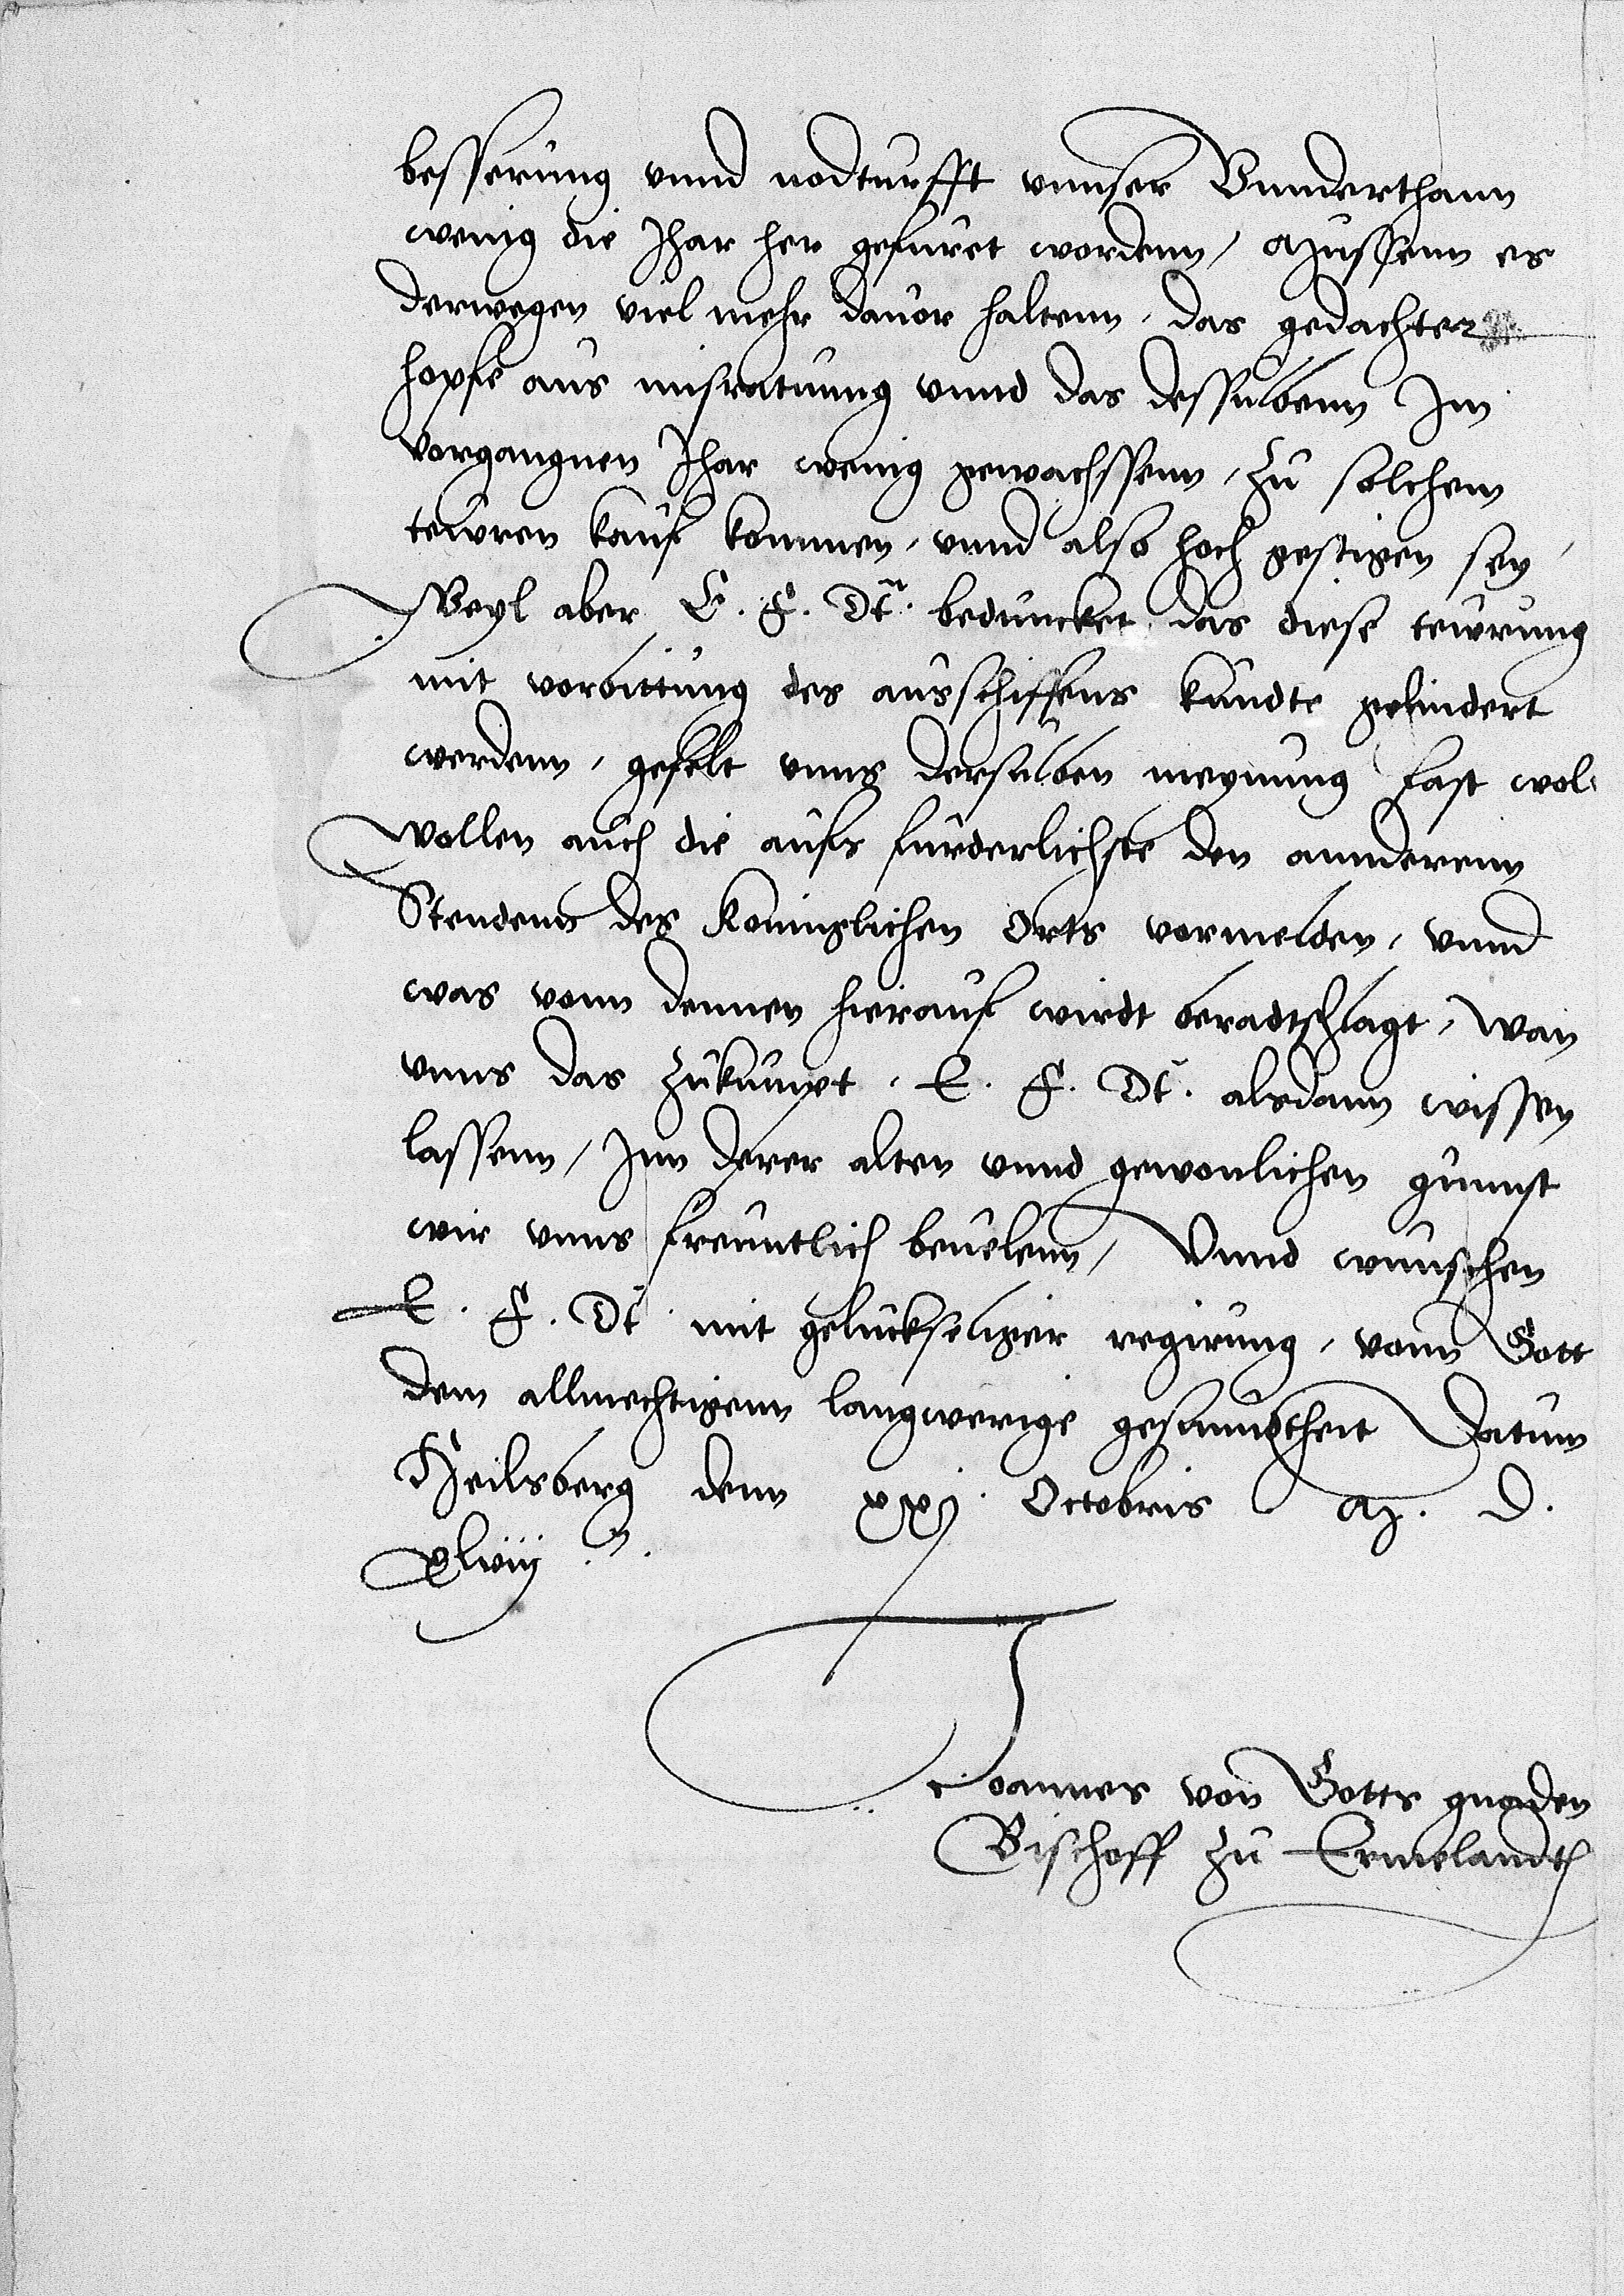 besserung vnnd nodturfft vnnser Vnnderthann
wenig die Jhar her gefuret wordenn, Mussenn es
derwegen viel mehr dauor haltenn, das gedachter
hopfe aus misratuung vnnd das desselbenn Im
vorgangnen Jhar wenig gewachssenn, zu solchem
tewren kauf kommen, vnnd also hoch gestigen sey,
Weyl aber E. F. Dt. beduncket, das diese tewrung
mit vorbittung des ausschiffens kundte gelindert
werdenn, gefelt vnns derselben meynung fast wol.
Wollen auch die aufs furderlichste den annderenn
Stendenn des Koniglichen Orts vormelden, vnnd
was vonn dennen hierauf wirdt beradtschlagt, wan
vnns das zukumpt, E. F. Dt. alsdann wissen
lassenn, Inn derer alten vnnd gewonlichen gunnst
wir vnns freuntlich beuelenn, Vnnd wunschen
E. F. Dt. mit geluckseliger regirung, vonn Gott
dem allmechtigenn langwerige gesunndtheit Datum
Heilsberg denn xxj. Octobris M. D.
xlviij.
Joannes von Gotts gnaden
Bischoff zu Ermelandt